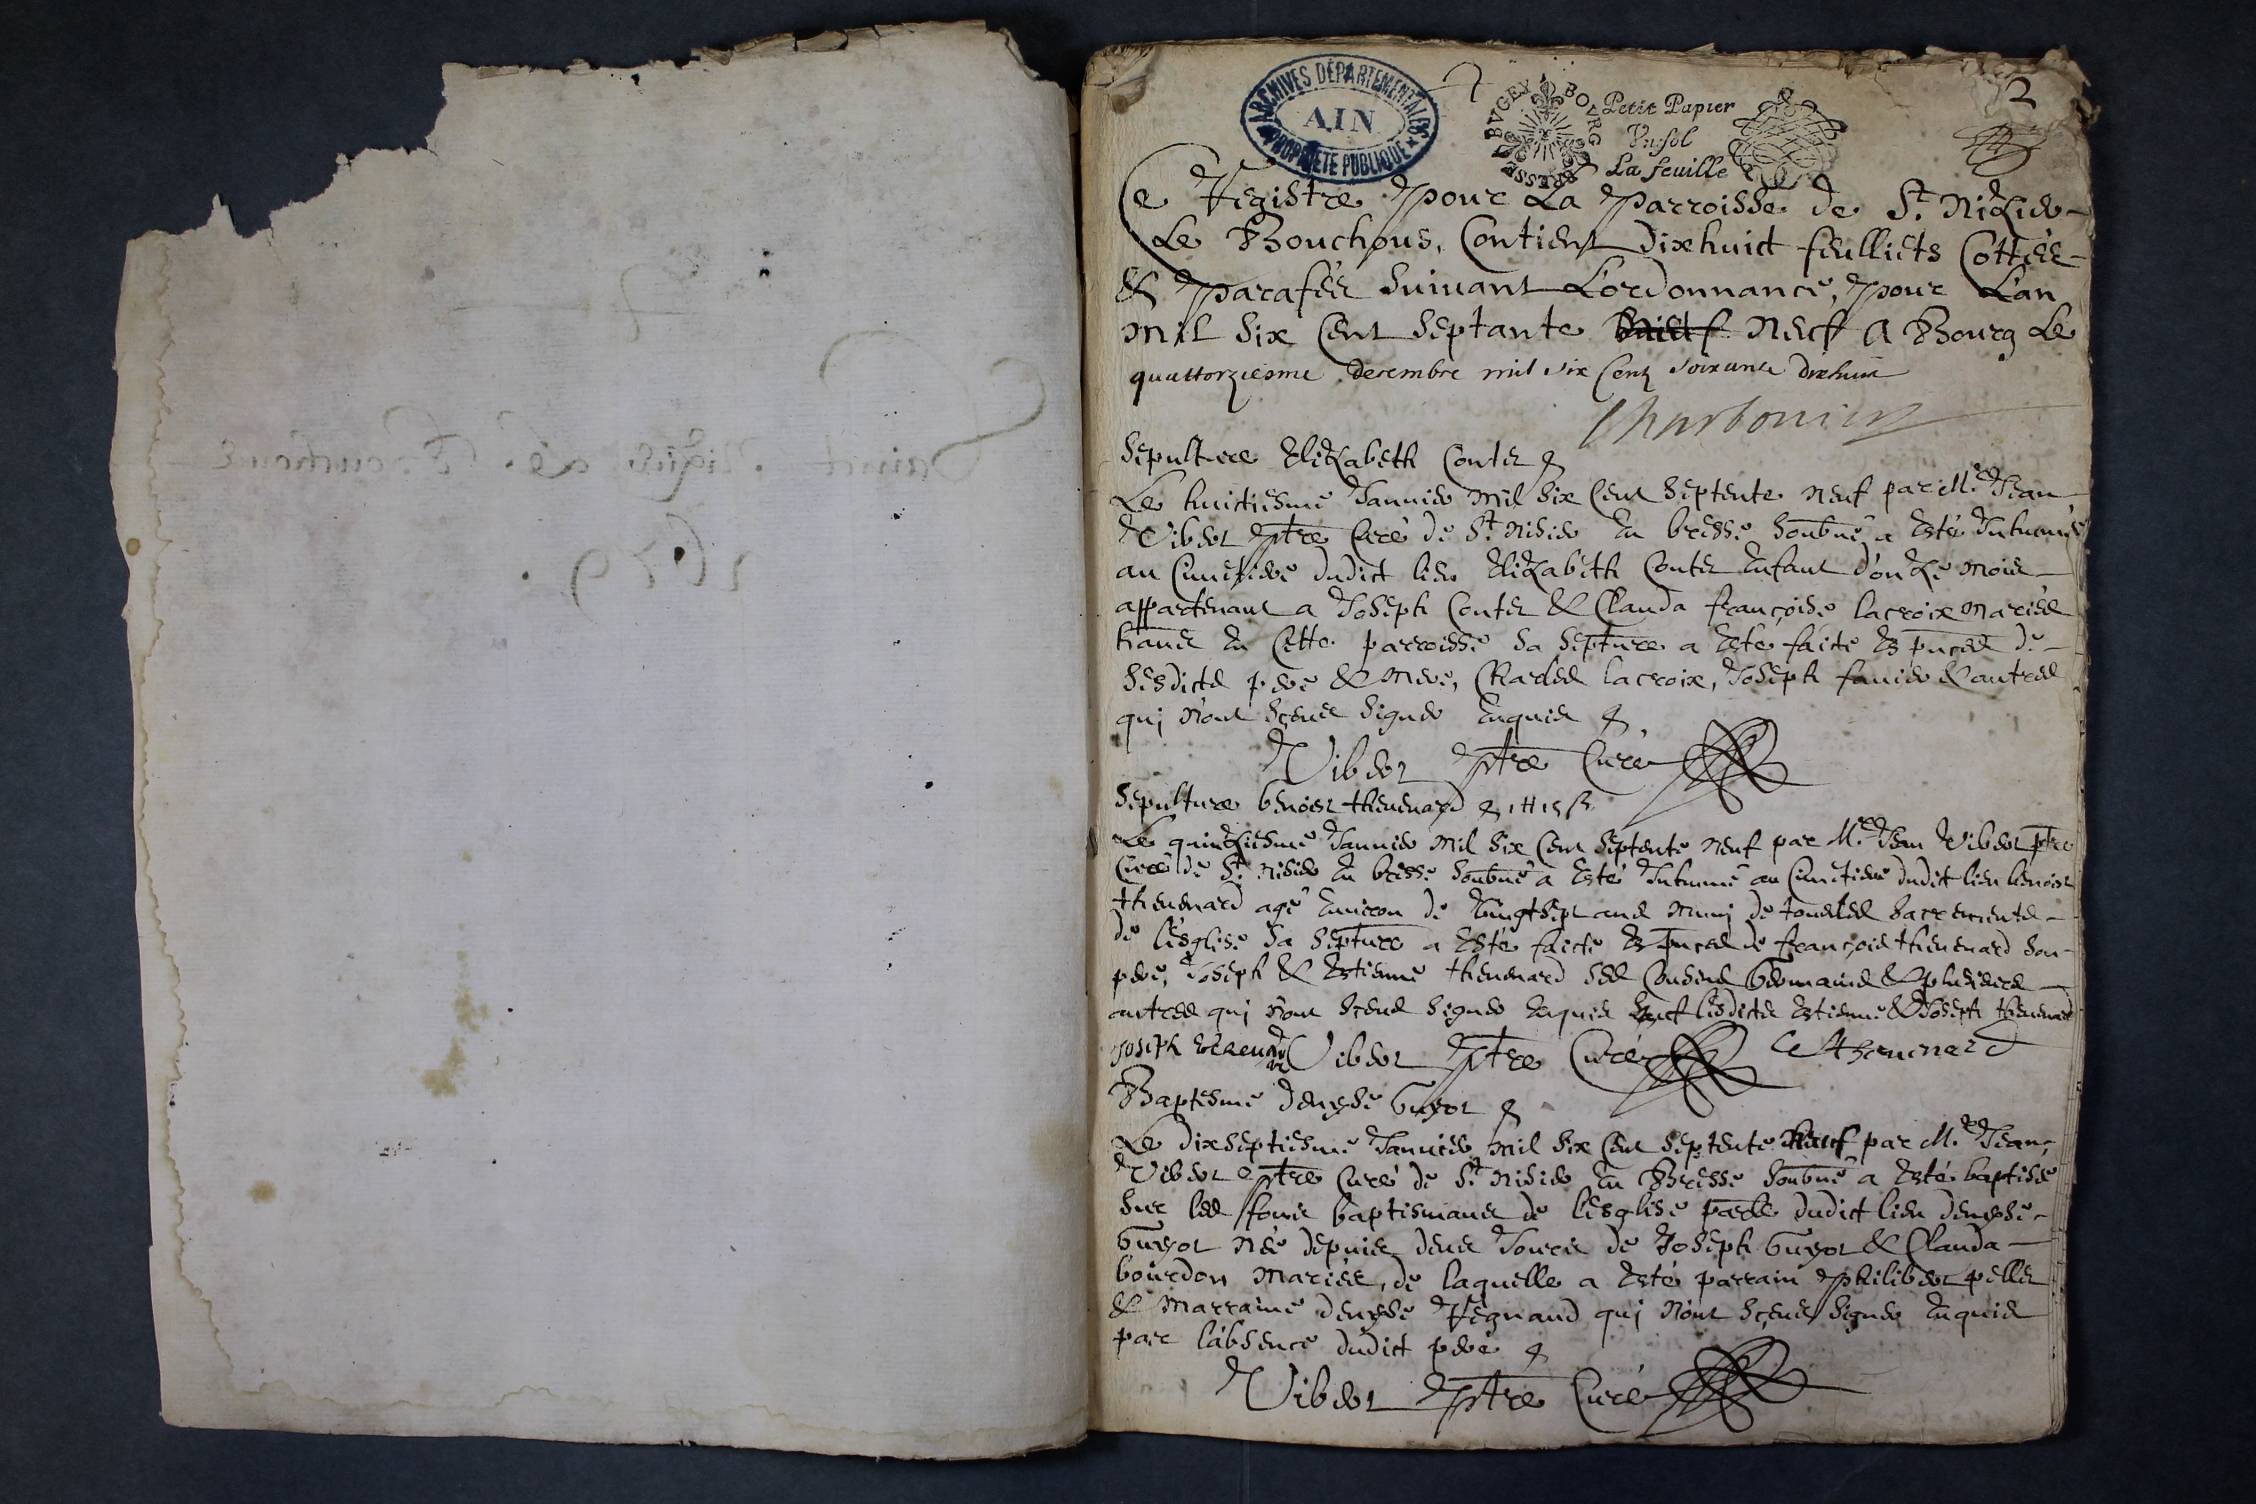 ARCHIVES DÉPARTEMENTALES
AIN
PROPRIÉTÉ PUBLIQUE
BRESSE BVGEY BOVRG
Petit Papier
Vn sol
La feuille
2
Ce Registre pour La Parroisse de St. Nizier
Le Bouchous, Contient dixhuict feulliets Cottés
& Parafés suivant L'ordonnance, pour L'an
mil six Cent septante neuf A Bourg Le
quattorziesme decembre mil six Cent soixante dixhuit
Charbonier
Sepulture Elizabeth Contet
Le huictiesme Janvier mil six Cent septente neuf par Mre Jean
Vibert ptre Curé de St. Nisier En bresse soubné a Esté Inhumée
au Cimetiere dudict lieu Elizabeth Contet Enfant d'onze mois
appartenant a Joseph Contet & Clauda françoise lacroix mariés
en Cette parroisse sa septure a Esté faicte Es pnces de
sesdicts pere & mere, Charles lacroix, Joseph & autres
qui n'ont sçeus signer Enquis
Vibert Ptre Curé
Sepulture benoist thevenard
Le quinziesme Janvier mil six Cent septente neuf par Mre Jean Vibert ptre
Curé de St. nisier En bresse soubné a Esté Inhumé au Cimetiere dudict lieu benoist
thevenard agé Environ de vingtsept ans muni de tous les sacrements
de l'esglise sa septure a Esté faicte Es pnces de françois thevenard son
pere, Joseph & Estienne thevenard ses Cousins Germains & plusieurs
autres qui n'ont sceus signer Enquis sauf lesdicts Estienne & Joseph thevenard
Joseph thevenard Vibert Ptre Curé E thevenard
Baptesme denyse Guyot
Le dixseptiesme Janvier mil six Cent septente neuf par Mre Jean
Vibert ptre Curé de St. nisier En Bresse soubné a Esté baptisée
sur les fons baptismaus de l'esglise parlle dudict lieu denyse
Guyot née depuis deus Jours de Joseph Guyot & Clauda
bourdon mariés, de laquelle a Esté parrain Philibert pellet
& marraine denyse Regnaud qui n'ont sçeus signer Enquis
par l'absence dudict pere
Vibert Ptre Curé